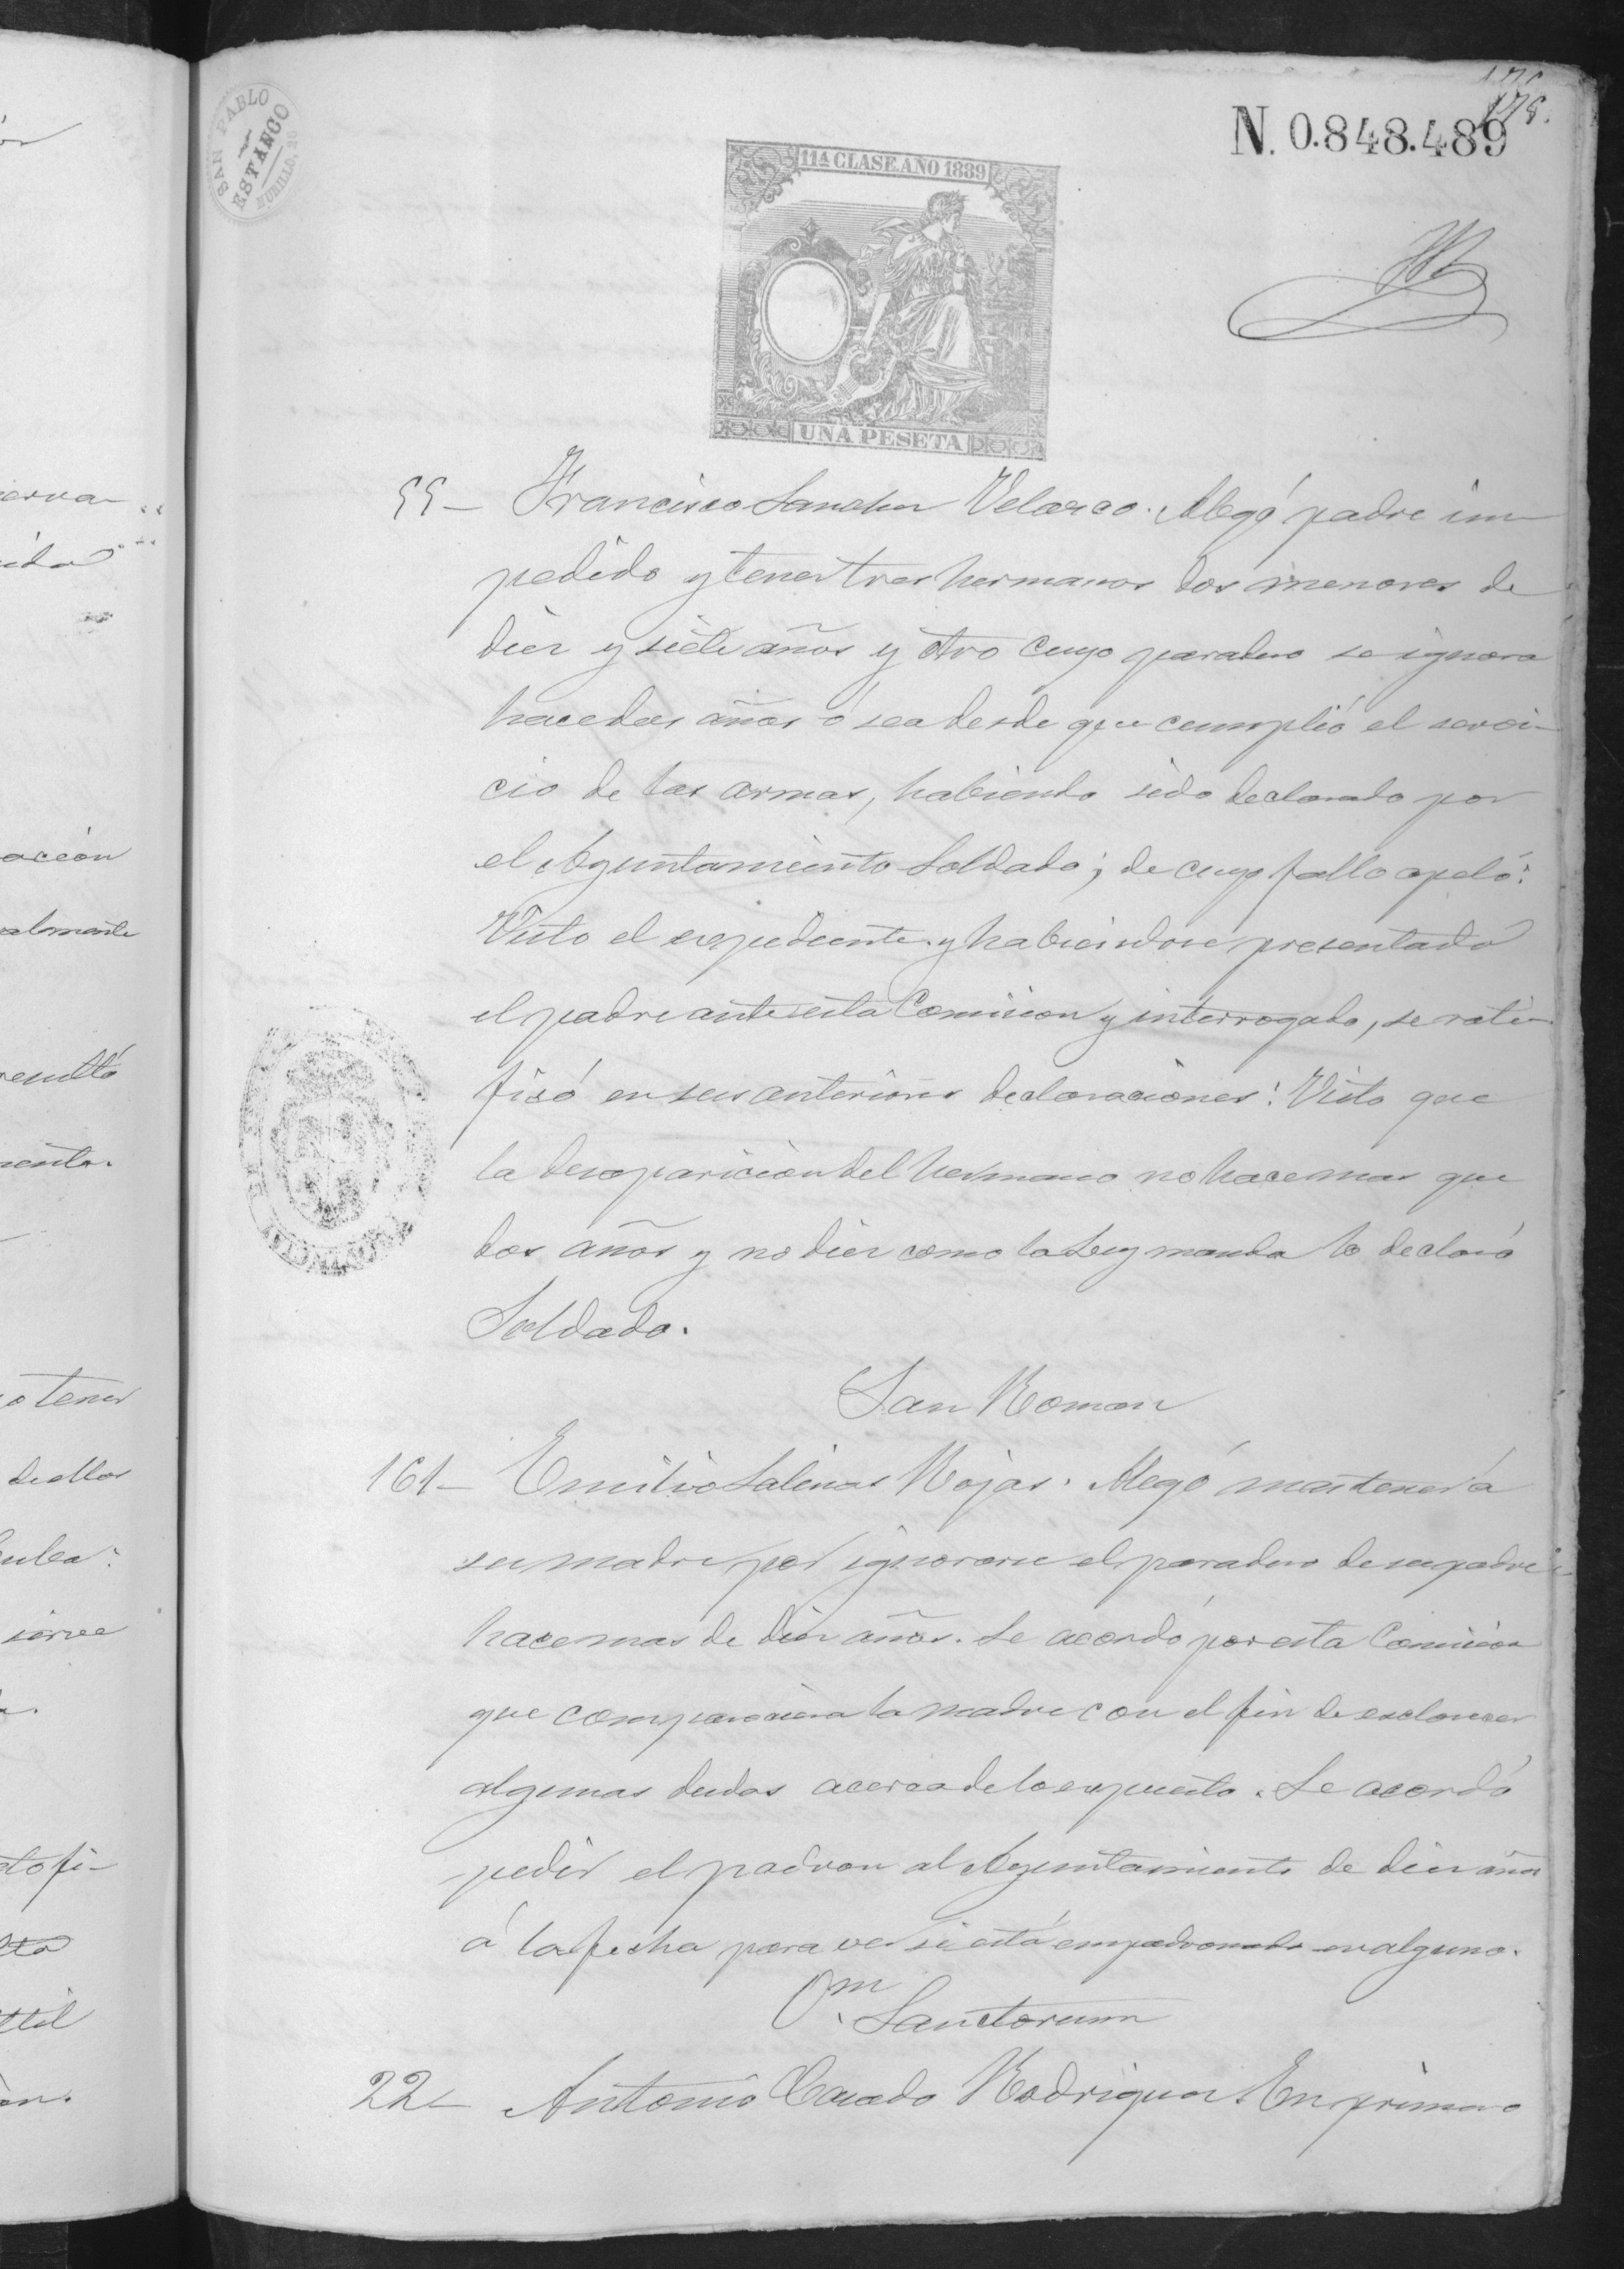 178.
N. 0.848.489
SAN PABLO
ESTANCO
MURILLO, 20
11ª CLASE. AÑO 1889
UNA PESETA
55- Francisco Sanchez Velasco. Alegó padre im-
pedido y tener tres hermanos dos menores de
diez y siete años y otro cuyo paradero se ignora
hace dos años ó sea desde que cumplió el servi-
cio de las armas, habiendo sido declarado por
el Ayuntamiento Soldado; de cuyo fallo apeló:
Visto el expediente y habiendose presentado
el padre ante esta Comision y interrogado, se rati-
ficó en sus anteriores declaraciones: Visto que
la desaparicion del hermano no hace mas que
dos años y no diez como la Ley manda lo declaró
Soldado.
San Roman
161- Emilio Salinas Rojas. Alegó mantener á
su madre por ignorarse el paradero de su padre
hace mas de diez años. Se acordó por esta Comision
que compareciera la madre con el fin de esclarecer
algunas dudas acerca de lo expuesto. Se acordó
pedir el padron al Ayuntamiento de diez años
á la fecha para ver si está empadronado en alguno.
Om. Sanctorum
22- Antonio Casado Rodriguez. En primero
erva
acion
almente
resultó
mento.
o tener
de ellos
sirve
to fi-